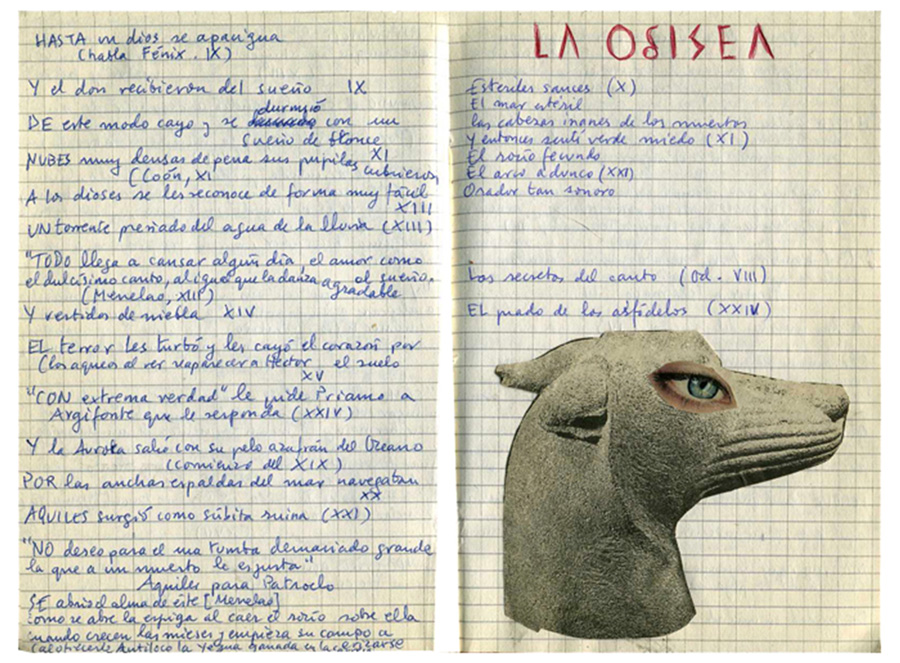 HASTA un dios se apacigua
(habla Fénix. IX)
Y el don recibieron del sueño IX
durmió
DE este modo cayo y se con un
sueño de bronce
NUBES muy densas de pena sus pupilas cubrieron
(Coón, XI XI
A los dioses se les reconoce de forma muy fácil
XIII
UN torrente preñado del agua de la lluvia (XIII)
"TODO llega a cansar algún día, el amor como
el dulcísimo canto, al igual que la danza agradable o el sueño.
(Menelao, XIII)
Y vestidos de niebla XIV
EL terror les turbó y les cayó el corazón por
(los aqueos al ver reaparecer a Héctor el suelo
XV
"CON extrema verdad" le pide Príamo a
Argifonte que le responda (XXIV)
Y la Aurora salió con su pelo azafrán del Oceano
(comienzo del XIX)
POR las anchas espaldas del mar navegaban
XX
AQUILES surgió como súbita ruina (XXI)
"NO deseo para el una tumba demasiado grande
la que a un muerto le es justa"
Aquiles para Patroclo
SE abrio el alma de éste [Menelao]
como se abre la espiga al caer el rocío sobre ella
cuando crecen las mieses y empieza su campo a
Antíloco la yegua ganada en la
LA ODISEA
Esteriles sauces (X)
El mar estéril
las cabezas inanes de los muertos
Y entonces sentí verde miedo (XI)
El rocío fecundo
El arco adunco (XXI)
Orador tan sonoro
Los secretos del canto (Od. VIII)
EL prado de los asfódelos (XXIV)